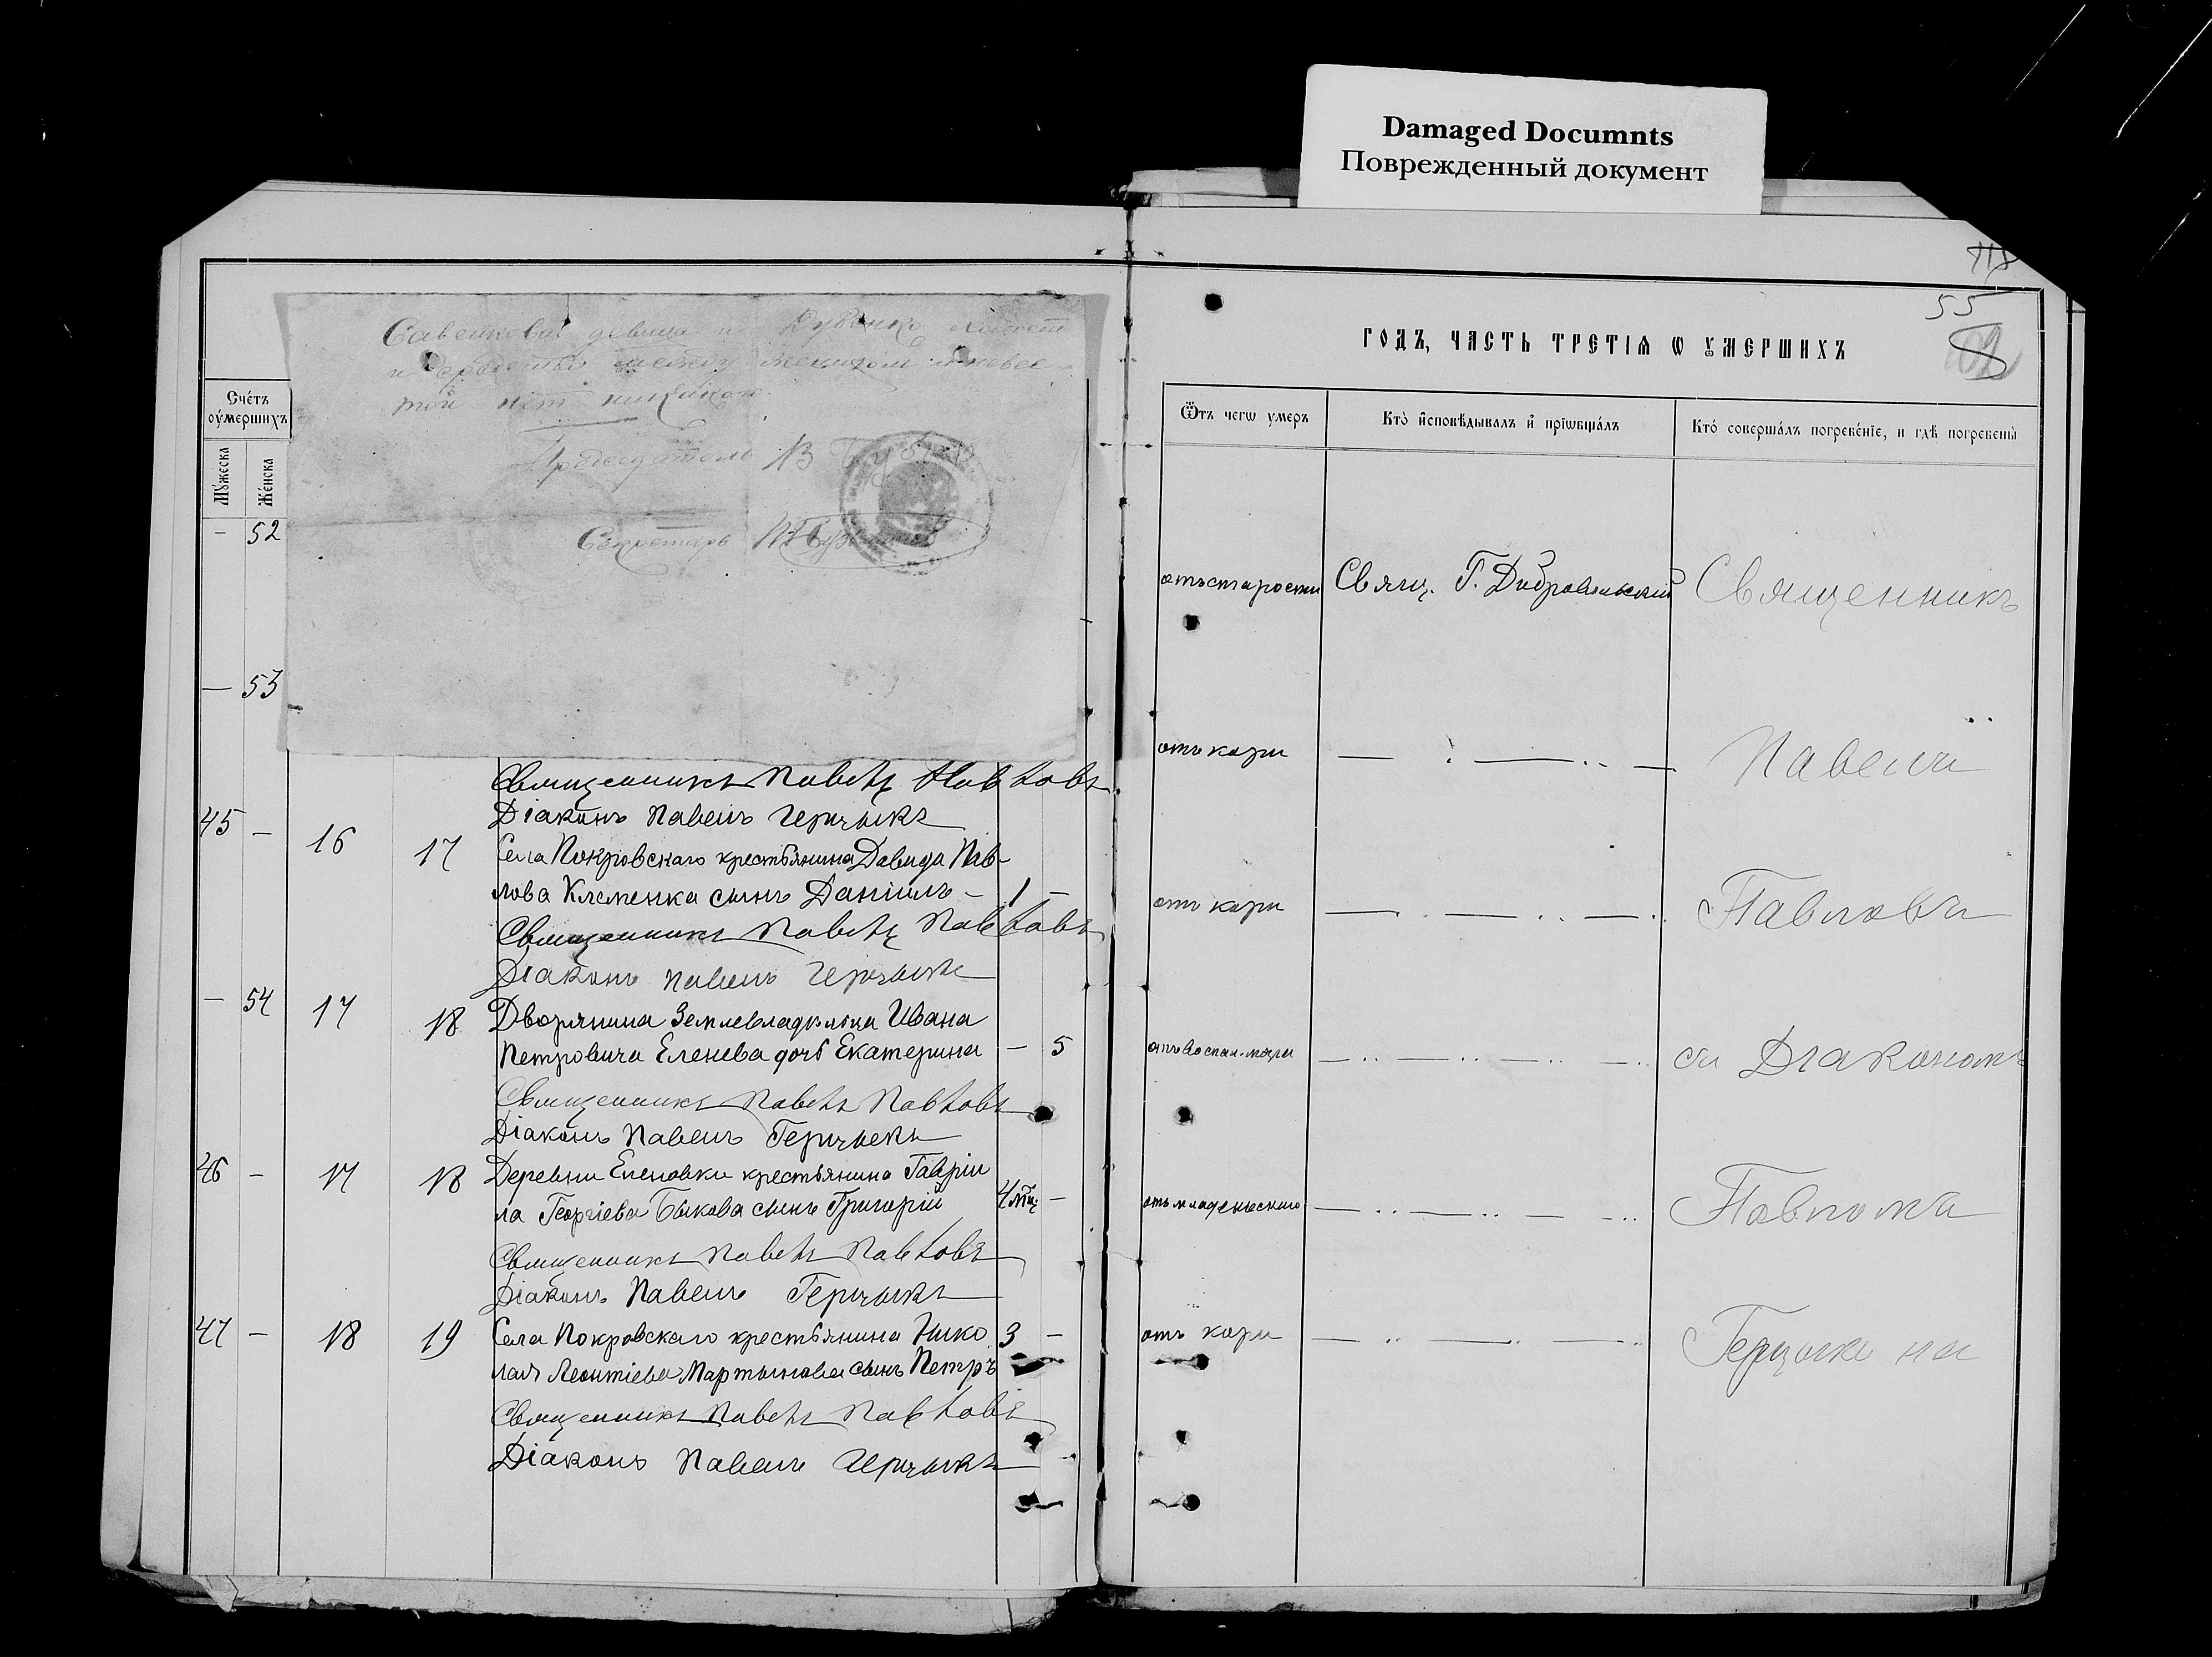 Damaged Documnts
Поврежденный документ
118
55
Савенкова девица и Кубенко холост
и сродства между женихом и невес-
той нет никакого.
Председатель
Секретарь
Счéтъ
оу́мершихъ
Мꙋ́жеска
Же́нска
- 52
- 53
Священникъ Павелъ Павловъ
Діаконъ Павелъ Герцыкъ
45 - 16 17 Села Покровскаго крестьянина Давида Пав-
лова Клеменка сынъ Даніилъ - 1 -
Священникъ Павелъ Павловъ
Діаконъ Павелъ Герцыкъ
- 54 17 18 Дворянина Землевладѣльца Ивана
Петровича Еленева дочь Екатерина - 5
Священникъ Павелъ Павловъ
Діаконъ Павелъ Герцыкъ
46 - 17 18 Деревни Еленовки крестьянина Гавріи
ла Георгіева Быкова сынъ Григорій 4 мц. -
Священникъ Павелъ Павловъ
Діаконъ Павелъ Герцыкъ
47 - 18 19 Села Покровскаго крестьянина Нико
лая Леонтіева Мартынова сынъ Петръ 3 -
Священникъ Павелъ Павловъ
Діаконъ Павелъ Герцыкъ
ГОДЪ, ЧАСТЬ ТРЕТІѦ Ѡ ОУМЕРШИХЪ
Ѿтъ чегѡ умеръ
Ктò и҆сповѣ́дывалъ и҆ прїѡбщáлъ
Ктó совершáлъ погребéнїе, и гдѣ̀ погребены̀
отъ старости Свящ. Г. Добровольскій Священникъ
отъ кори Павелъ
отъ кори Павловъ
съ Діакономъ
отъ младенческаго Павломъ
отъ кори Герцыкъ на